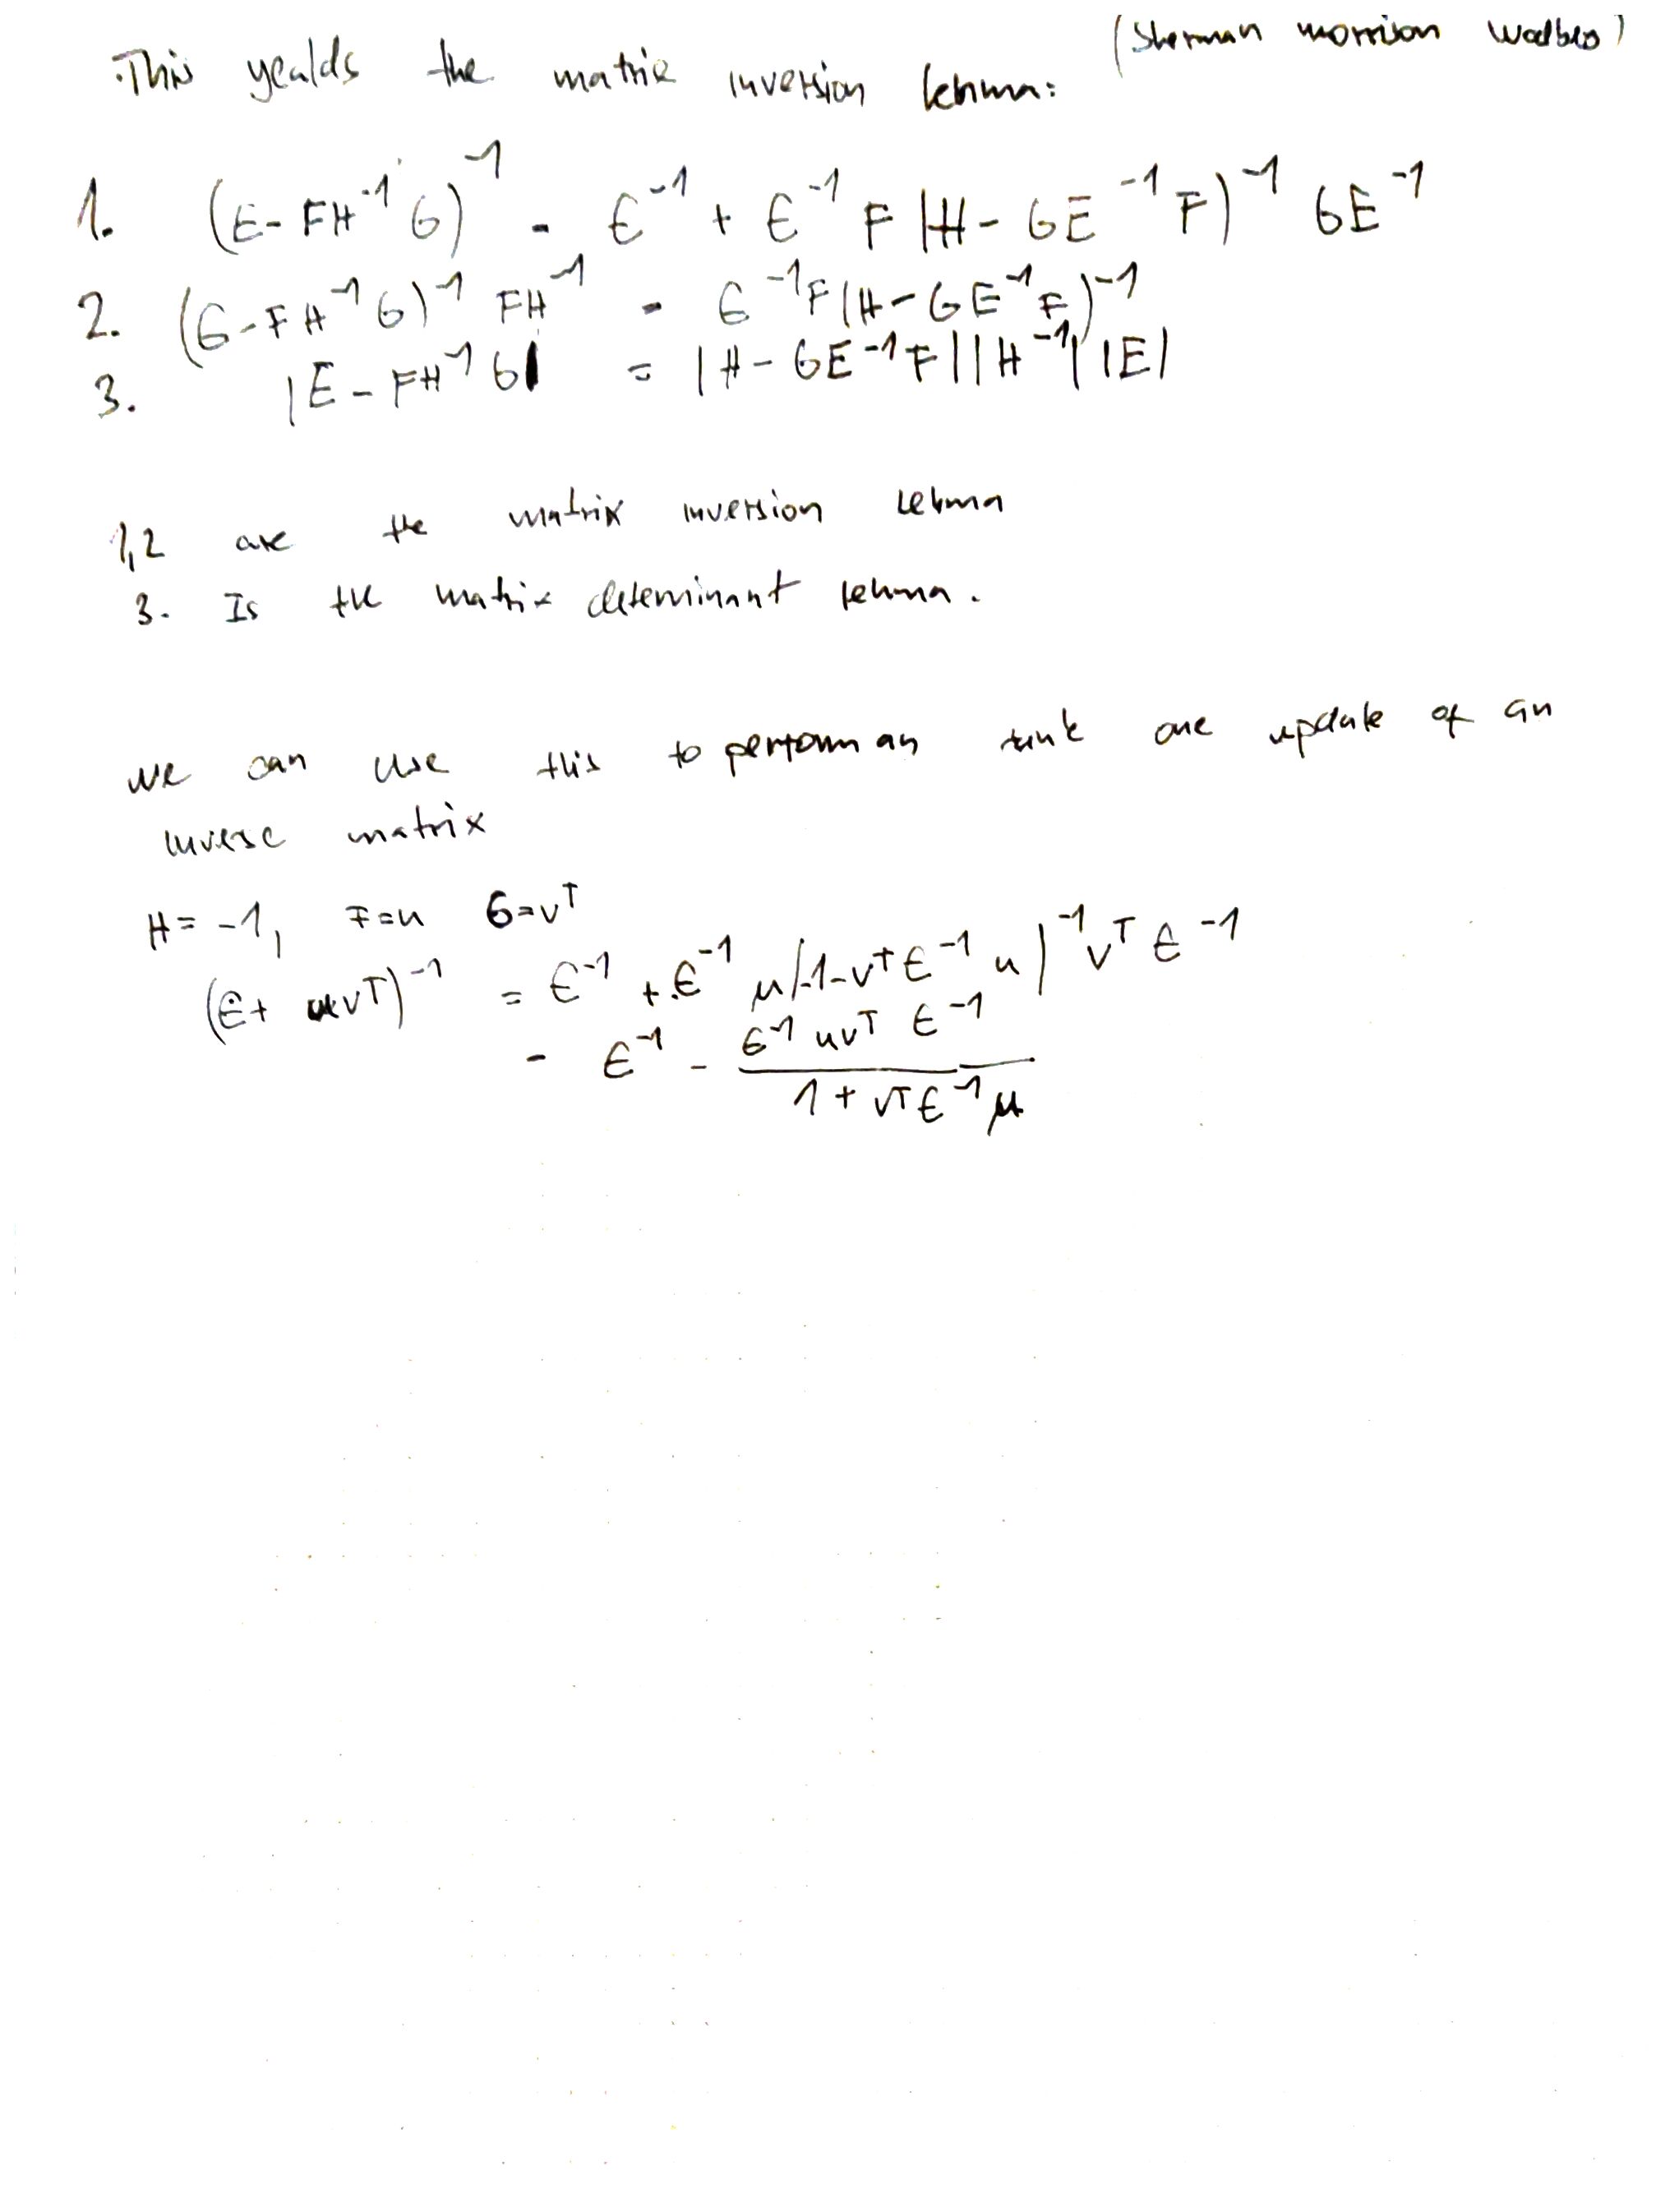 (Sherman morrison Woodbro)
This yealds the matrix inversion lehma:
1. (E - FH⁻¹G)⁻¹ = E⁻¹ + E⁻¹F(H - GE⁻¹F)⁻¹ GE⁻¹
2. (E - FH⁻¹G)⁻¹ FH⁻¹ = E⁻¹F(H - GE⁻¹F)⁻¹
3. |E - FH⁻¹G| = |H - GE⁻¹F||H⁻¹||E|
1,2 are the matrix inversion lehma
3. Is the matrix determinant lehma.
we can use this to perform an rank one update of an
inverse matrix
H = -1, F=u G=vᵀ
(E + uvᵀ)⁻¹ = E⁻¹ + E⁻¹ u(-1-vᵀE⁻¹u)⁻¹vᵀE⁻¹
= E⁻¹ - E⁻¹uvᵀE⁻¹ / 1 + vᵀE⁻¹u